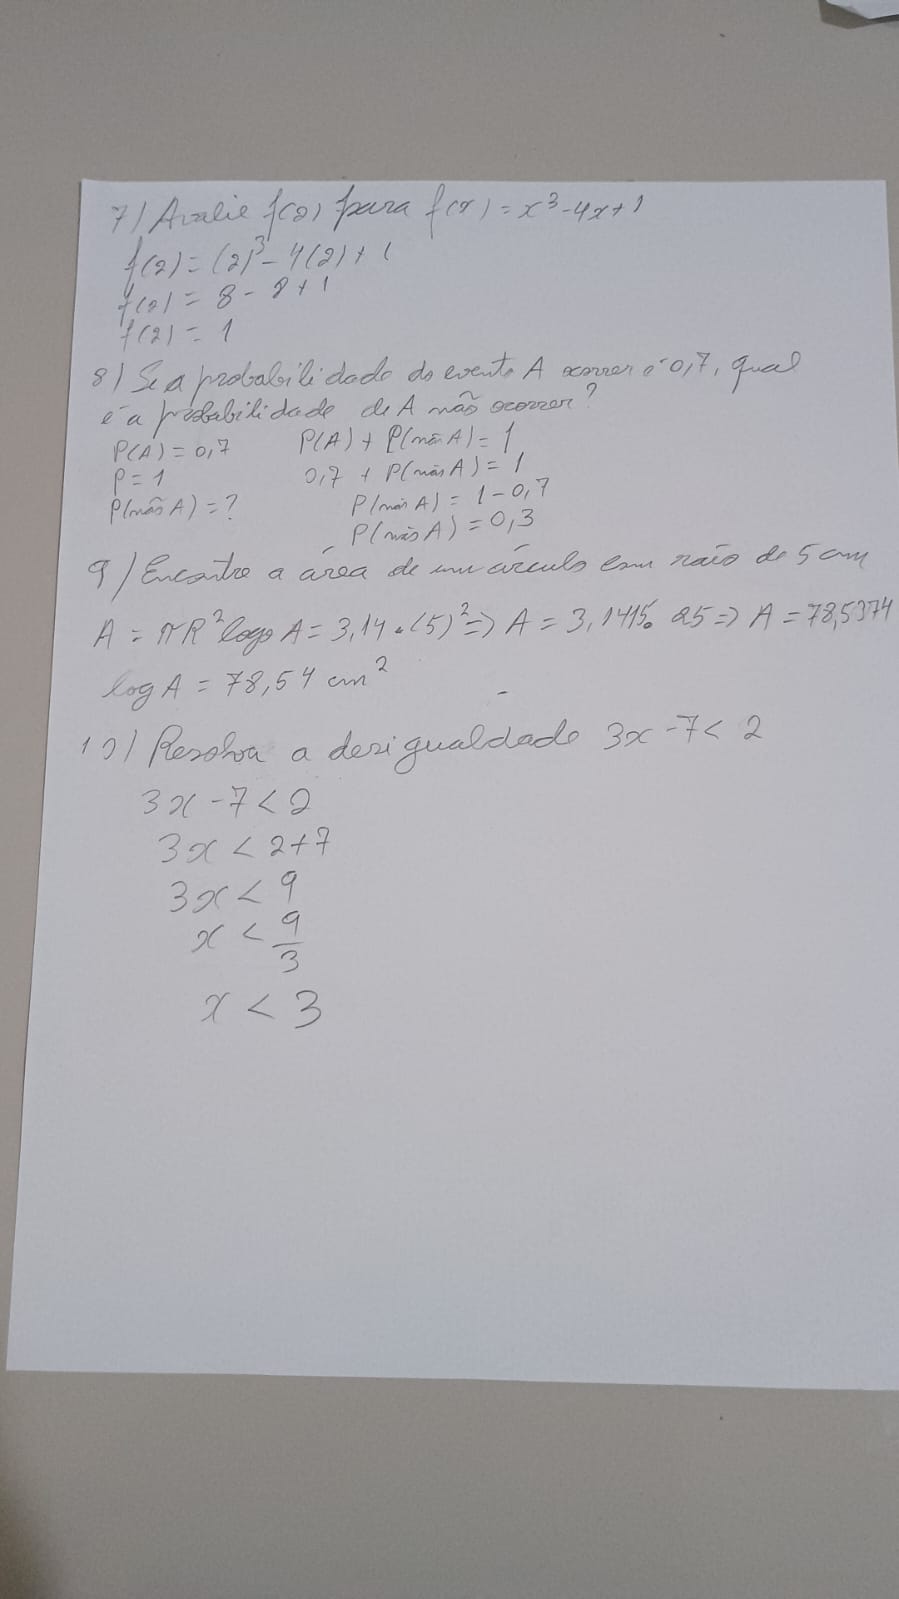 7) Avalie f(2) para f(x) = x³-4x+1
f(2) = (2)³ - 4(2) + 1
f(2) = 8 - 8 + 1
f(2) = 1
8) Se a probabilidade do evento A ocorrer é 0,7, qual
é a probabilidade de A não ocorrer?
P(A) = 0,7 P(A) + P(não A) = 1
P = 1 0,7 + P(não A) = 1
P(não A) = ? P(não A) = 1 - 0,7
P(não A) = 0,3
9) Encontre a área de um círculo com raio de 5 cm
A = πR² logo A = 3,14 . (5)² => A = 3,1415 . 25 => A = 78,5374
log A = 78,54 cm²
10) Resolva a desigualdade 3x - 7 < 2
3x - 7 < 2
3x < 2+7
3x < 9
x < 9/3
x < 3